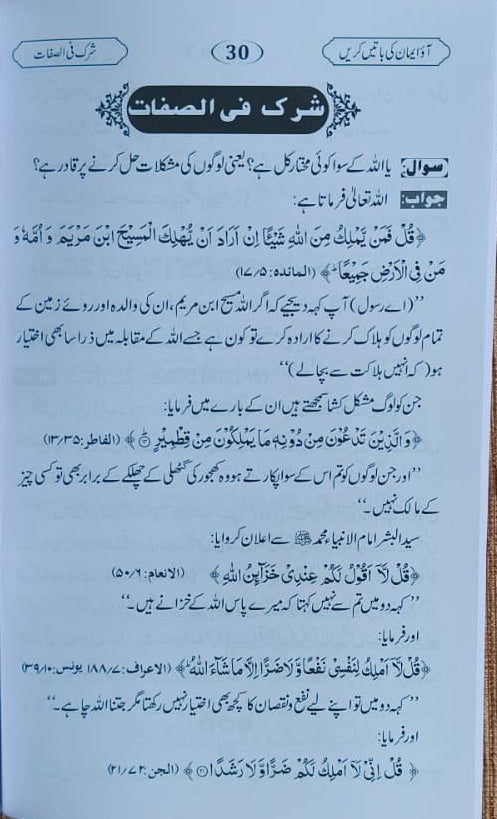 آؤ ایمان کی باتیں کریں
30
شرک فی الصفات
شرک فی الصفات
سوال: یا اللہ کے سوا کوئی مختار کل ہے؟ یعنی لوگوں کی مشکلات حل کرنے پر قادر ہے؟
جواب: اللہ تعالیٰ فرماتا ہے:
﴿قُلْ فَمَنْ يَّمْلِكُ مِنَ اللّٰهِ شَيْئًا اِنْ اَرَادَ اَنْ يُّهْلِكَ الْمَسِيْحَ ابْنَ مَرْيَمَ وَ اُمَّهٗ وَ
مَنْ فِي الْاَرْضِ جَمِيْعًا ؕ﴾ (المائدہ: ۱۷/۵)
”(اے رسول) آپ کہہ دیجیے کہ اگر اللہ مسیح ابن مریم، ان کی والدہ اور روئے زمین کے
تمام لوگوں کو ہلاک کرنے کا ارادہ کرے تو کون ہے جسے اللہ کے مقابلہ میں ذرا سا بھی اختیار
ہو (کہ انہیں ہلاکت سے بچالے)“
جن کو لوگ مشکل کشا سمجھتے ہیں ان کے بارے میں فرمایا:
﴿وَالَّذِيْنَ تَدْعُوْنَ مِنْ دُوْنِهٖ مَا يَمْلِكُوْنَ مِنْ قِطْمِيْرٍ﴾ (الفاطر: ۱۳/۳۵)
”اور جن لوگوں کو تم اس کے سوا پکارتے ہو وہ کھجور کی گٹھلی کے چھلکے کے برابر بھی تو کسی چیز
کے مالک نہیں۔“
سید البشر امام الانبیاء محمد ﷺ سے اعلان کروایا:
﴿قُلْ لَّاۤ اَقُوْلُ لَكُمْ عِنْدِيْ خَزَآىِٕنُ اللّٰهِ﴾ (الانعام: ۵۰/۶)
”کہہ دو میں تم سے نہیں کہتا کہ میرے پاس اللہ کے خزانے ہیں۔“
اور فرمایا:
﴿قُلْ لَّاۤ اَمْلِكُ لِنَفْسِيْ نَفْعًا وَّ لَا ضَرًّا اِلَّا مَا شَآءَ اللّٰهُ ؕ﴾ (الاعراف: ۱۸۸/۷ یونس: ۳۹/۱۰)
”کہہ دو میں تو اپنے لیے نفع و نقصان کا کچھ بھی اختیار نہیں رکھتا مگر جتنا اللہ چاہے۔“
اور فرمایا:
﴿قُلْ اِنِّيْ لَاۤ اَمْلِكُ لَكُمْ ضَرًّا وَّ لَا رَشَدًا﴾ (الجن: ۲۱/۷۲)